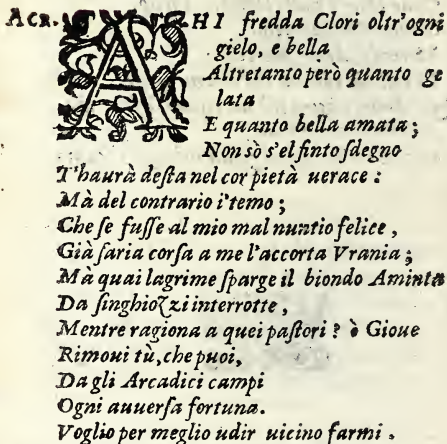 ACR. AHI fredda Clori oltr'ogni
gielo, e bella
Altretanto però quanto ge
lata
E quanto bella amata;
Non sò s'el finto ſdegno
T'haurà deſta nel cor pietà uerace:
Mà del contrario i'temo;
Che ſe fuſſe al mio mal nuntio felice,
Già ſaria corſa a me l'accorta Vrania;
Mà quai lagrime ſparge il biondo Aminta
Da ſinghiozzi interrotte,
Mentre ragiona a quei paſtori? ò Gioue
Rimoui tù, che puoi,
Da gli Arcadici campi
Ogni auuerſa fortuna.
Voglio per meglio udir uicino farmi.